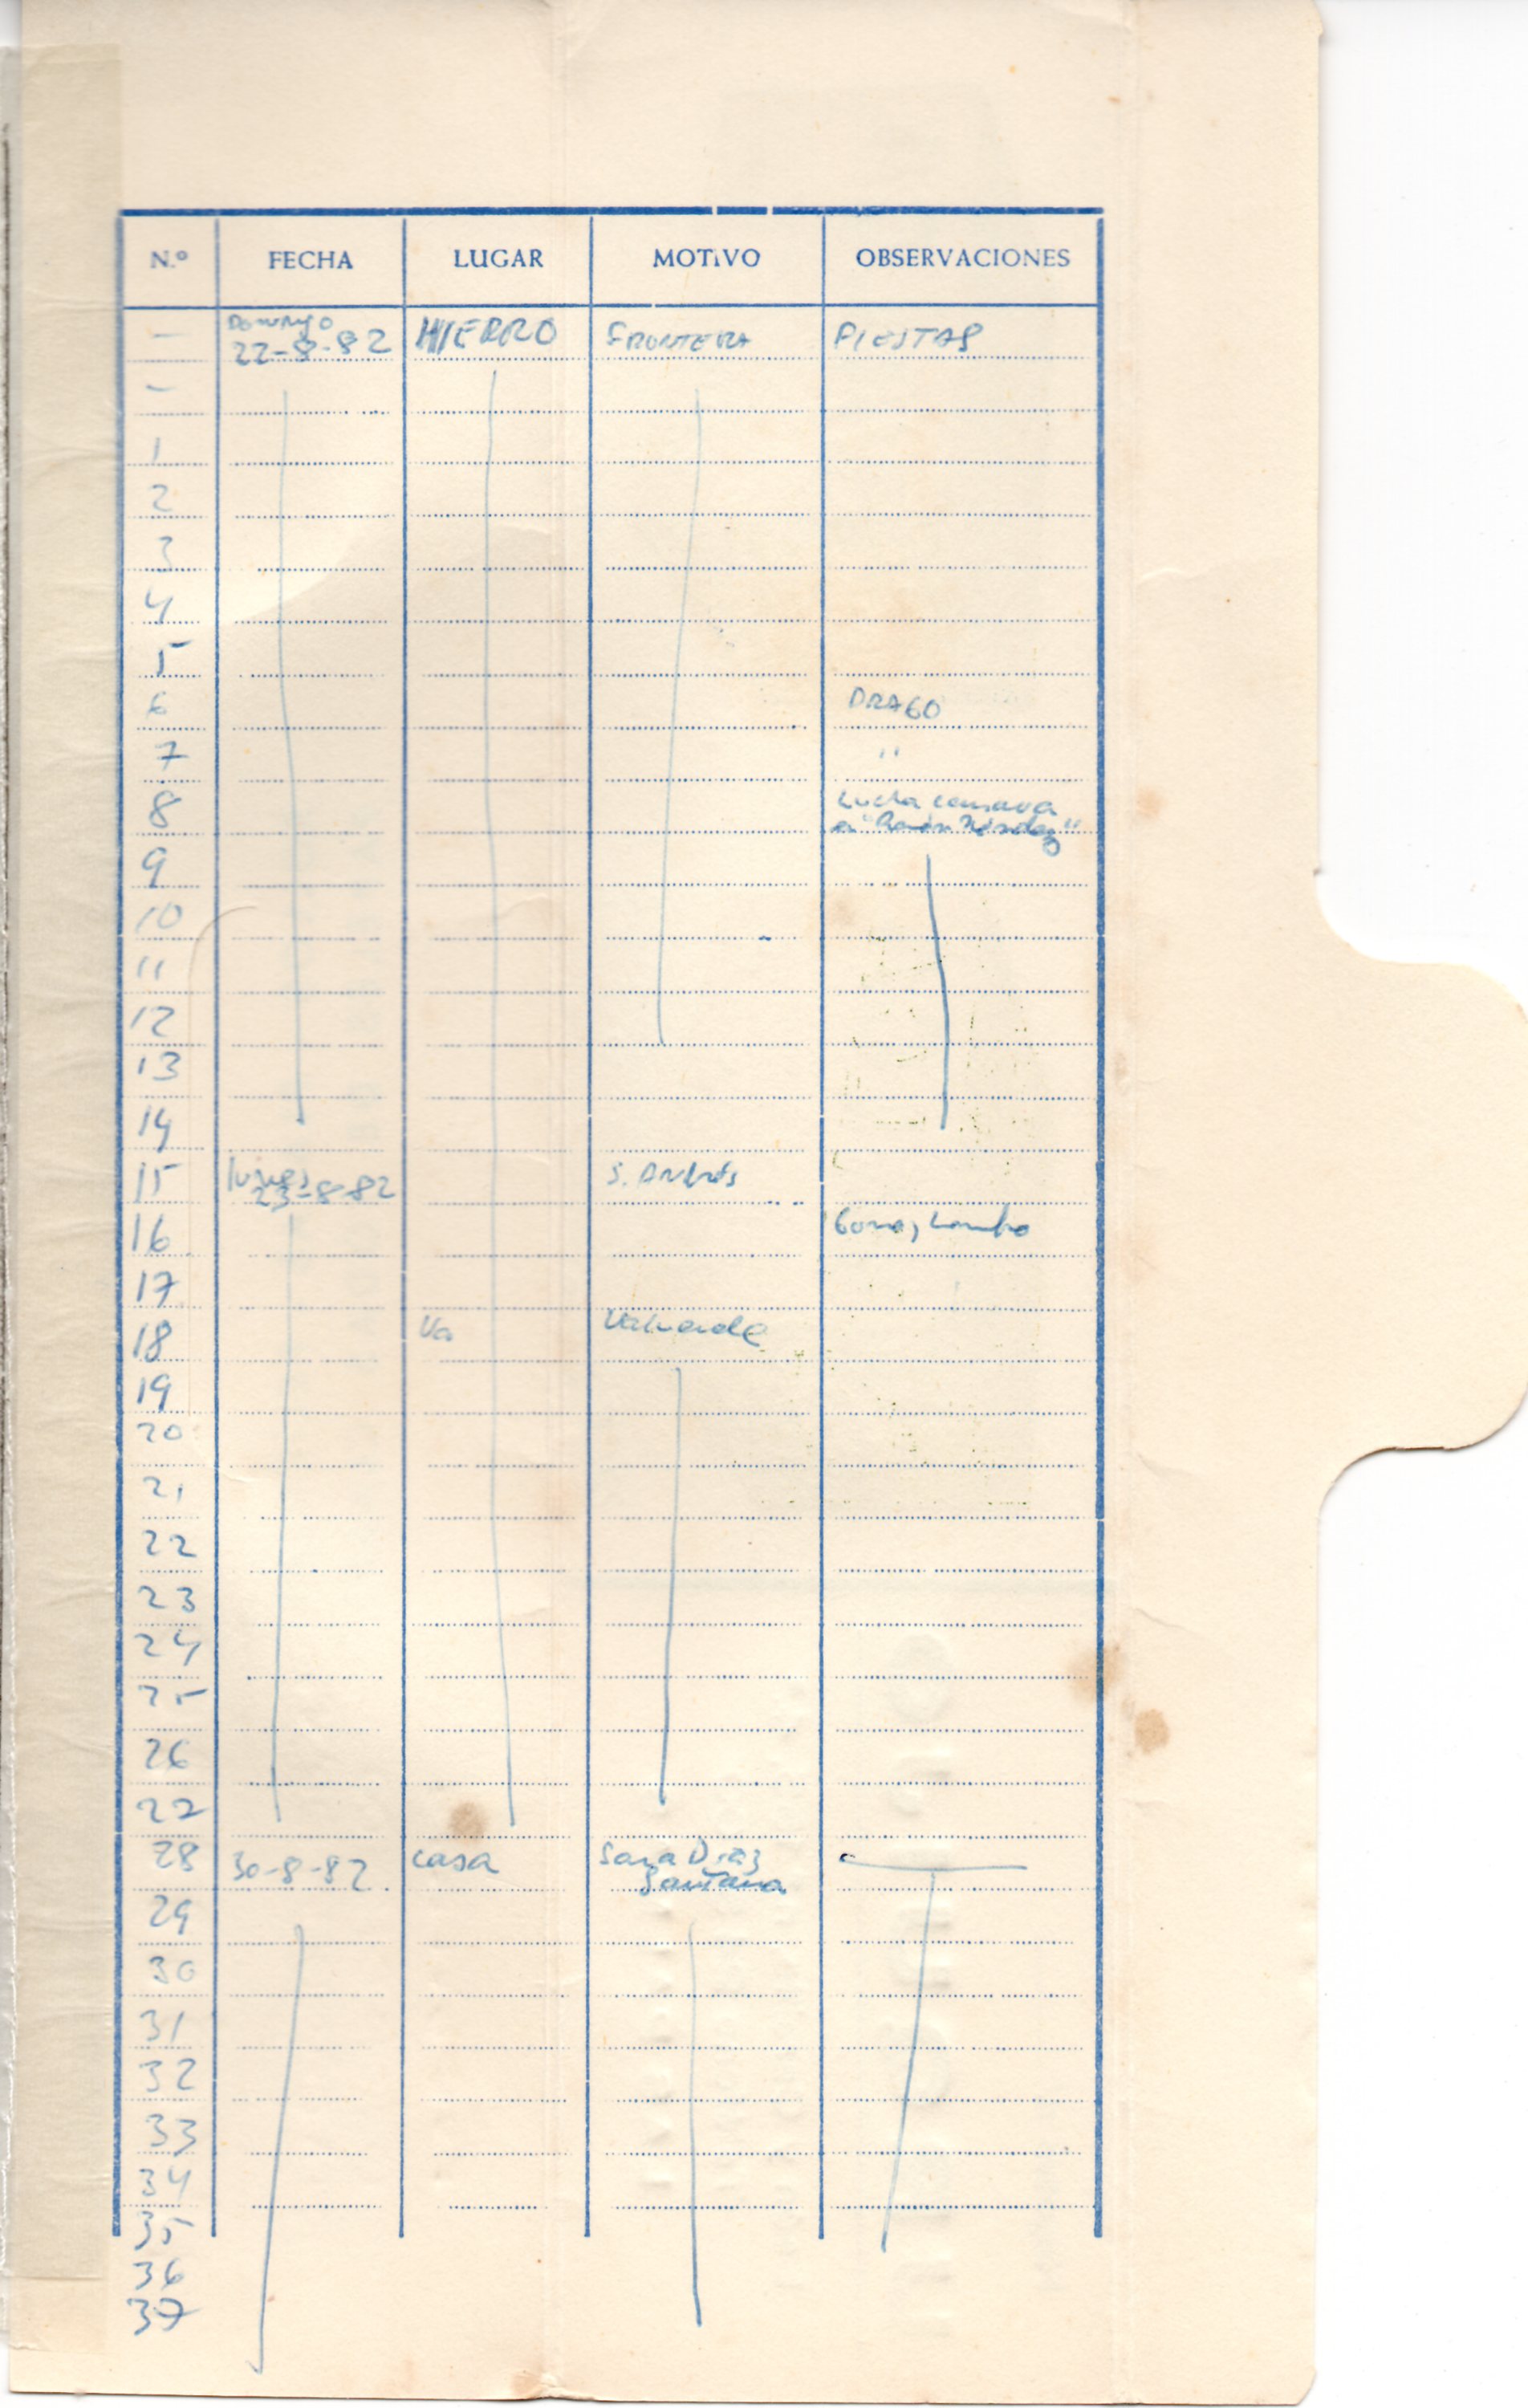 N.º FECHA LUGAR MOTIVO OBSERVACIONES
— Domingo
22-8-82 HIERRO FRONTERA FIESTAS
—
1
2
3
4
5
6 DRAGO
7 "
8 Lucha canaria
en "Ramón Méndez"
9
10
11
12
13
14
15 lunes
23-8-82 S. Andrés
16
17
18 Va Valverde
19
20
21
22
23
24
25
26
27
28 30-8-82. casa Sara Díaz
Santana
29
30
31
32
33
34
35
36
37